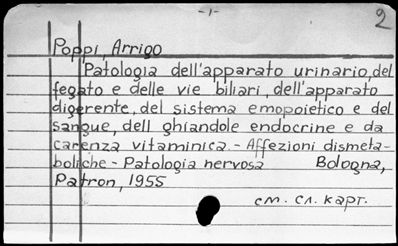 -1-
2
Poppi, Arrigo
Patologia dell'apparato urinario, del
fegato e delle vie biliari, dell'apparato
digerente, del sistema emopoietico e del
sangue, dell ghiandole endocrine e da
carenza vitaminica. - Affezioni dismeta-
boliche - Patologia nervosa Bologna,
Patron, 1955
см. сл. карт.